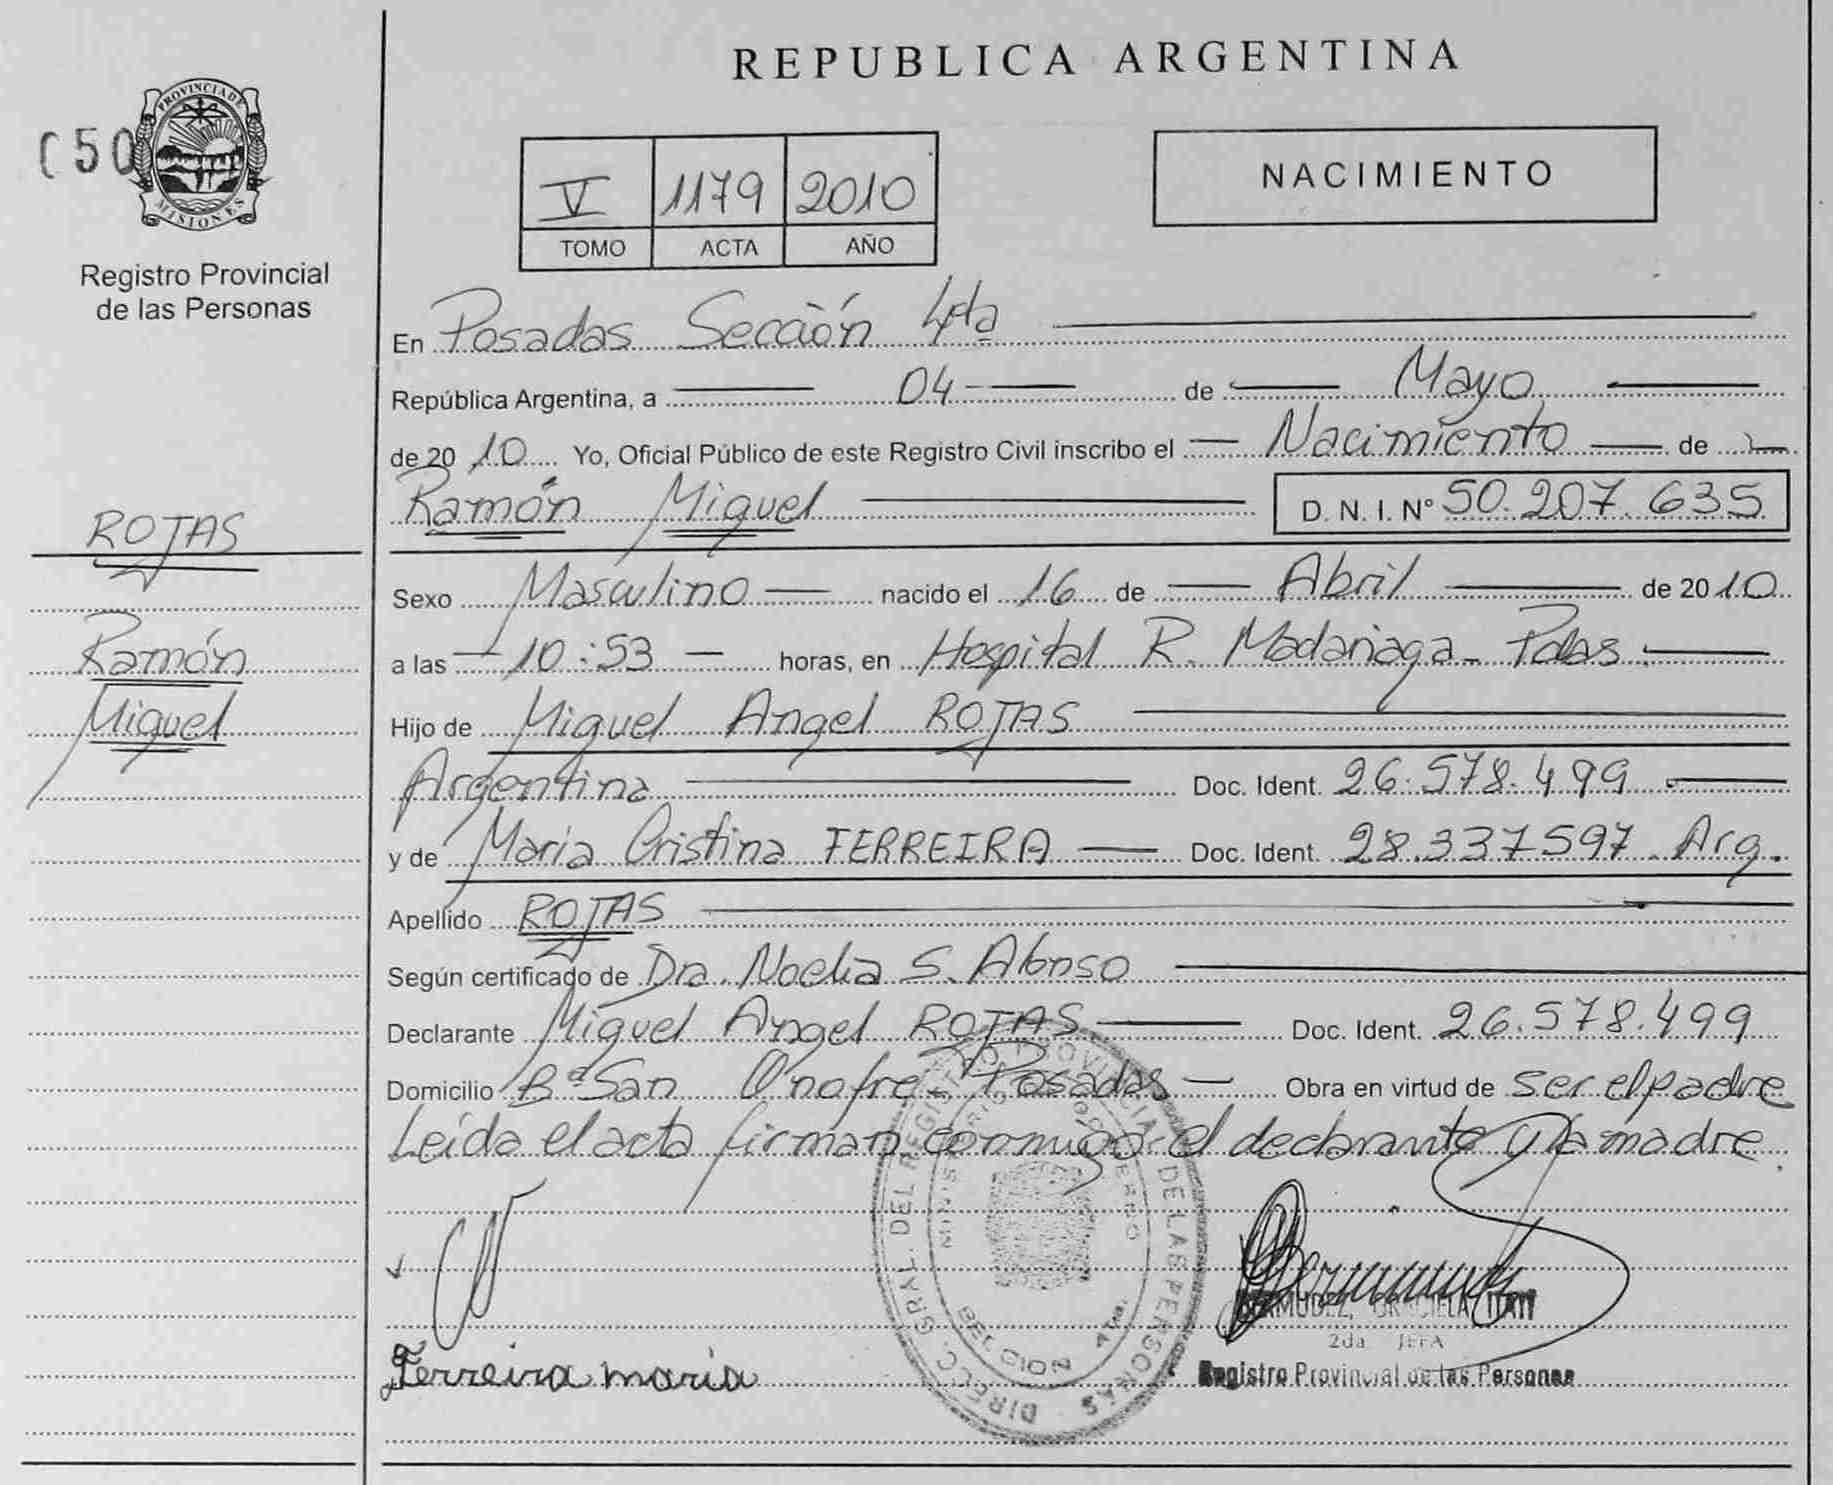 REPUBLICA ARGENTINA
PROVINCIA DE
MISIONES
C50
Registro Provincial
de las Personas
V 1179 2010
TOMO ACTA AÑO
NACIMIENTO
En Posadas Sección 4ta
República Argentina, a 04 de Mayo
de 2010 Yo, Oficial Público de este Registro Civil inscribo el Nacimiento de
Ramón Miguel D. N. I. Nº 50.207.635
ROJAS
Ramón
Miguel
Sexo Masculino nacido el 16 de Abril de 2010
a las 10:53 horas, en Hospital R. Madariaga - Pdas.
Hijo de Miguel Angel ROJAS
Argentina Doc. Ident. 26.578.499
y de Maria Cristina FERREIRA Doc. Ident. 28.337597 Arg.
Apellido ROJAS
Según certificado de Dra. Noelia S. Alonso
Declarante Miguel Angel ROJAS Doc. Ident. 26.578.499
Domicilio Bº San Onofre Posadas Obra en virtud de ser el padre
Leída el acta firman conmigo el declarante y la madre.
Ferreira maria
BERMUDEZ, GRACIELA ITATI
2da JEFA
Registro Provincial de las Personas
DIREC. GRAL. DEL REGISTRO PROVINCIAL DE LAS PERSONAS
SECCION 4ta.